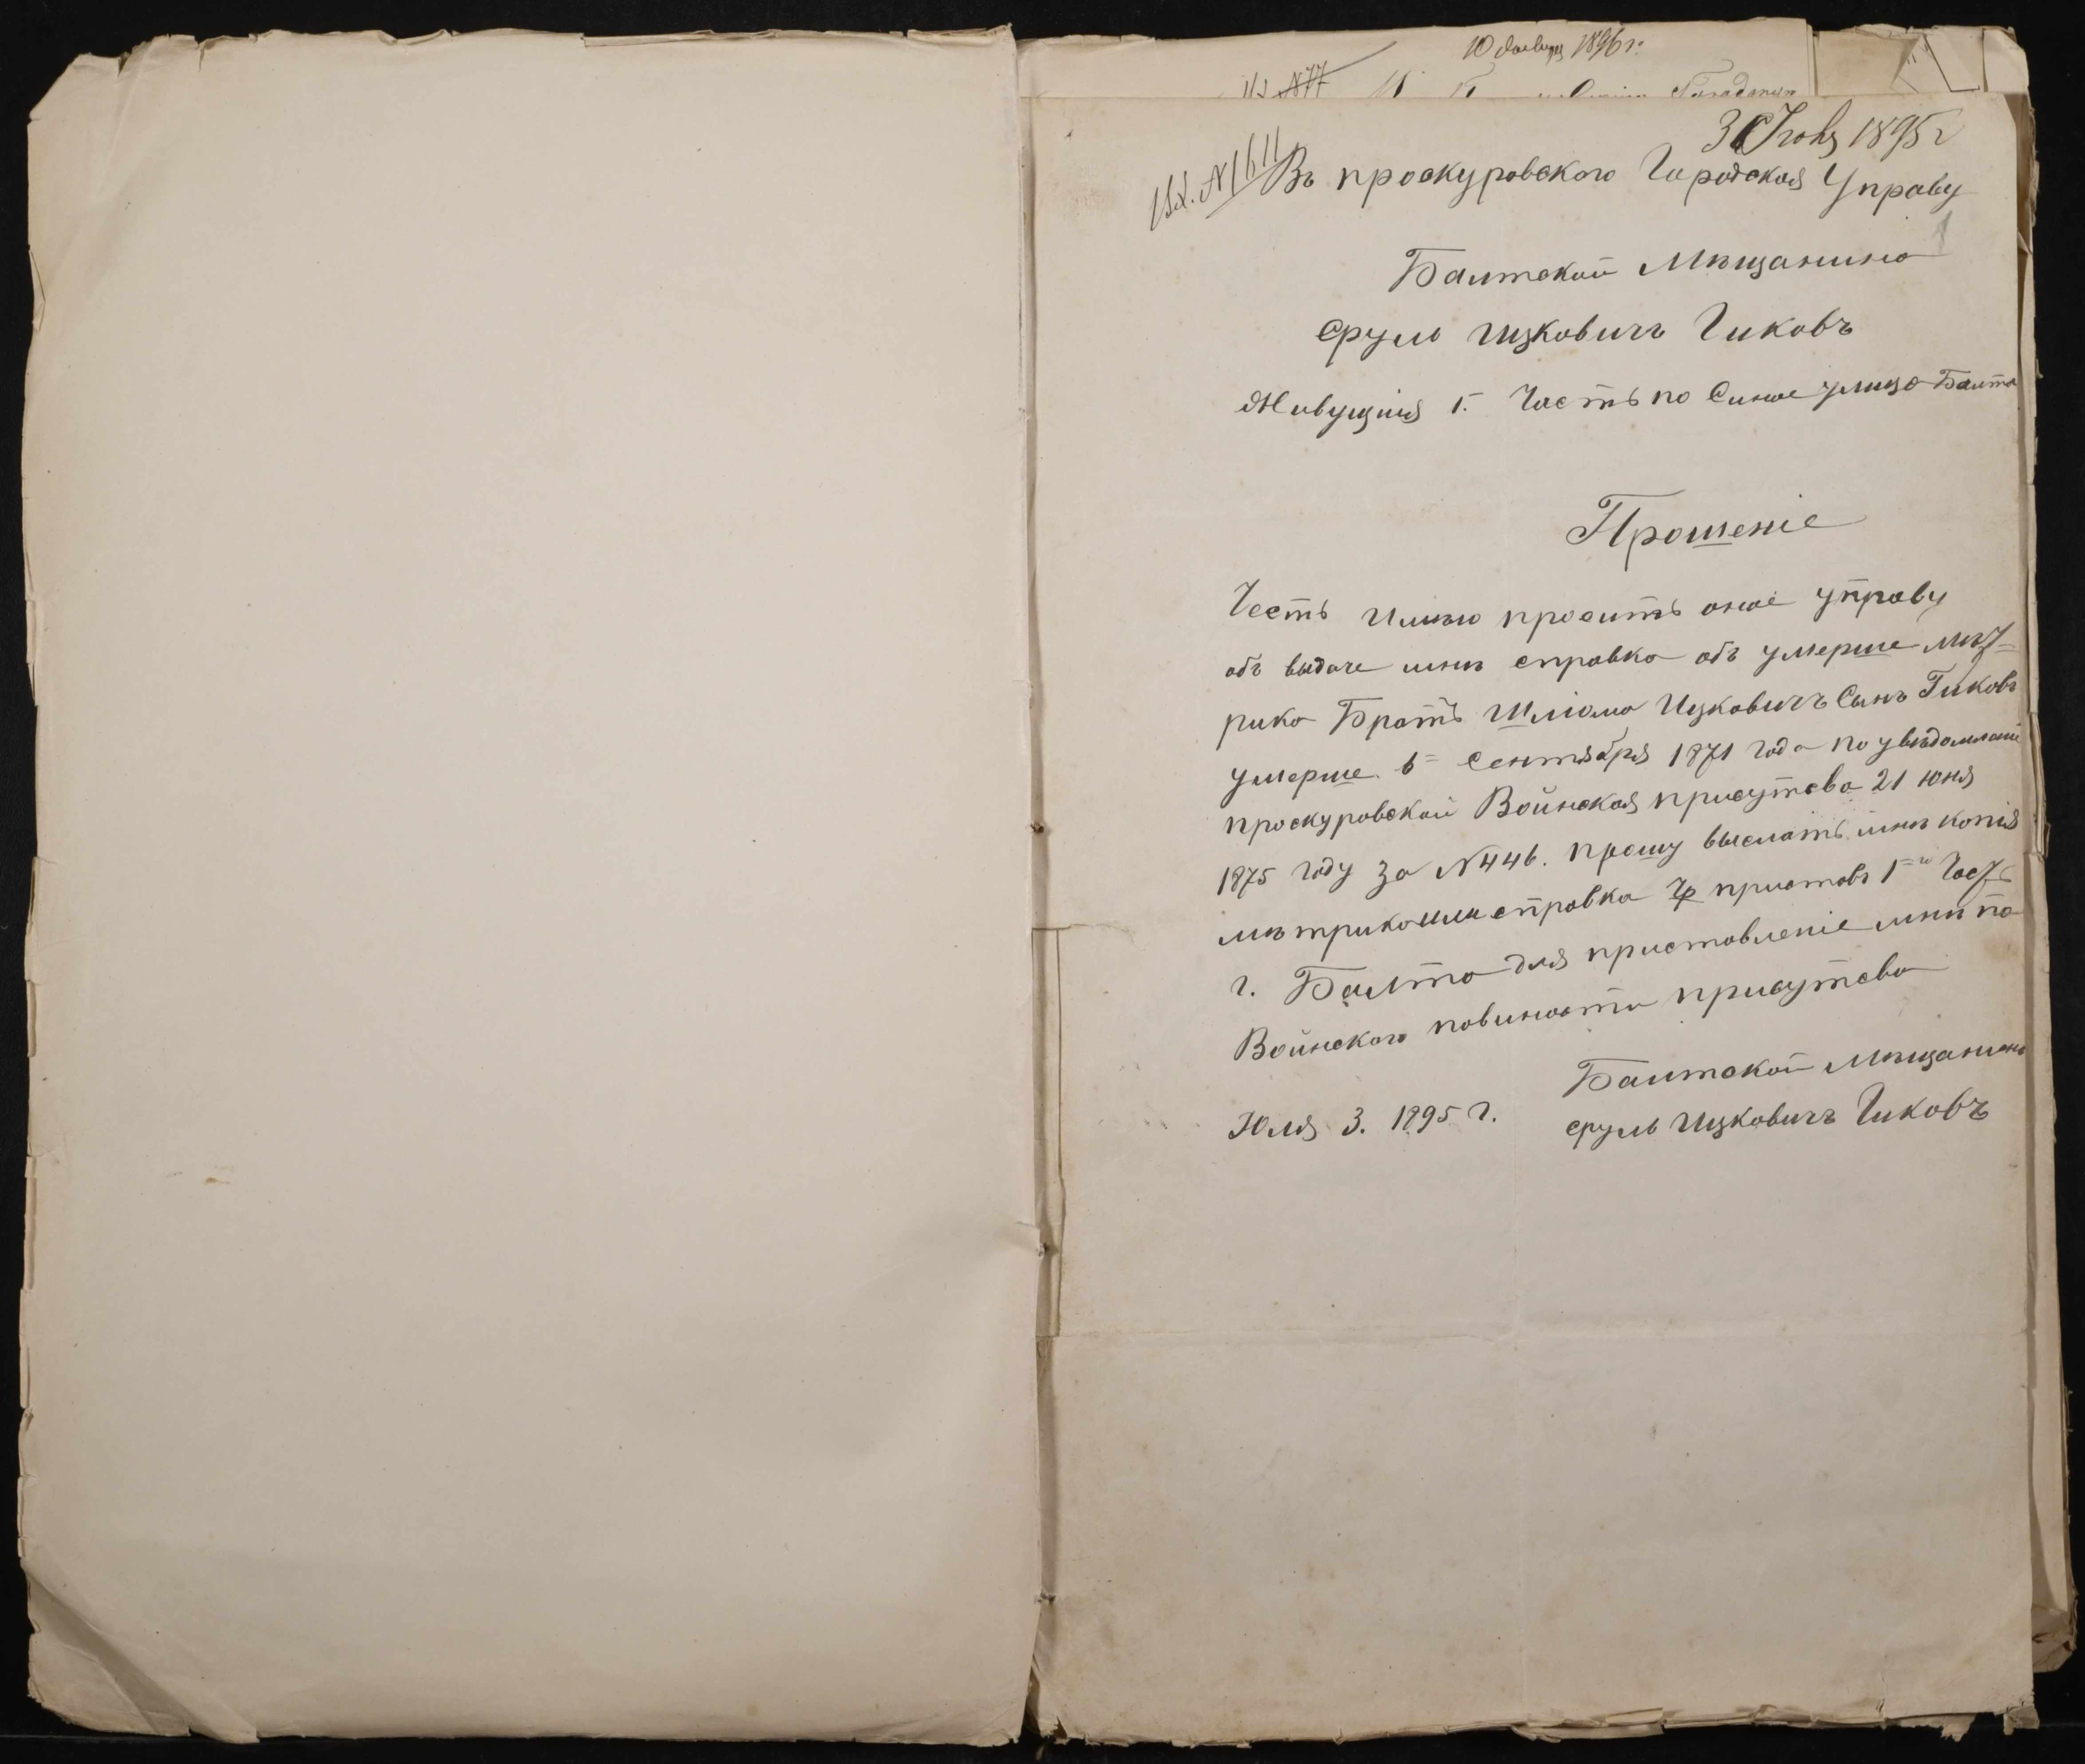 10 Января 1896 г.
Вх №77
30 Июня 1895 г
Вх. №1611
Въ проскуровского Городская Управу
1
Балтской Мѣщанино
Сруль Ицковичъ Гиковъ
Живущия 1. Часть по Синое улица Балта
Прошеніе
Честь Имѣю просить оное управу
объ выдаче мнѣ справка объ умерше мѣт=
рика Братъ Шліома Ицковичъ Сынъ Гиковъ
умерше 6= Сентября 1871 года по увѣдомлаие
проскуровской Воинская присутсва 21 юня
1875 году за №446. прошу выслать мнѣ копія
мѣтрика или справка приставъ 1= Часть
г. Балта для приставленіе мнѣ по
Воинского повиности присутсва
Балтской Мѣщанинъ
Юля 3. 1895 г. Сруль Ицковичъ Гиковъ